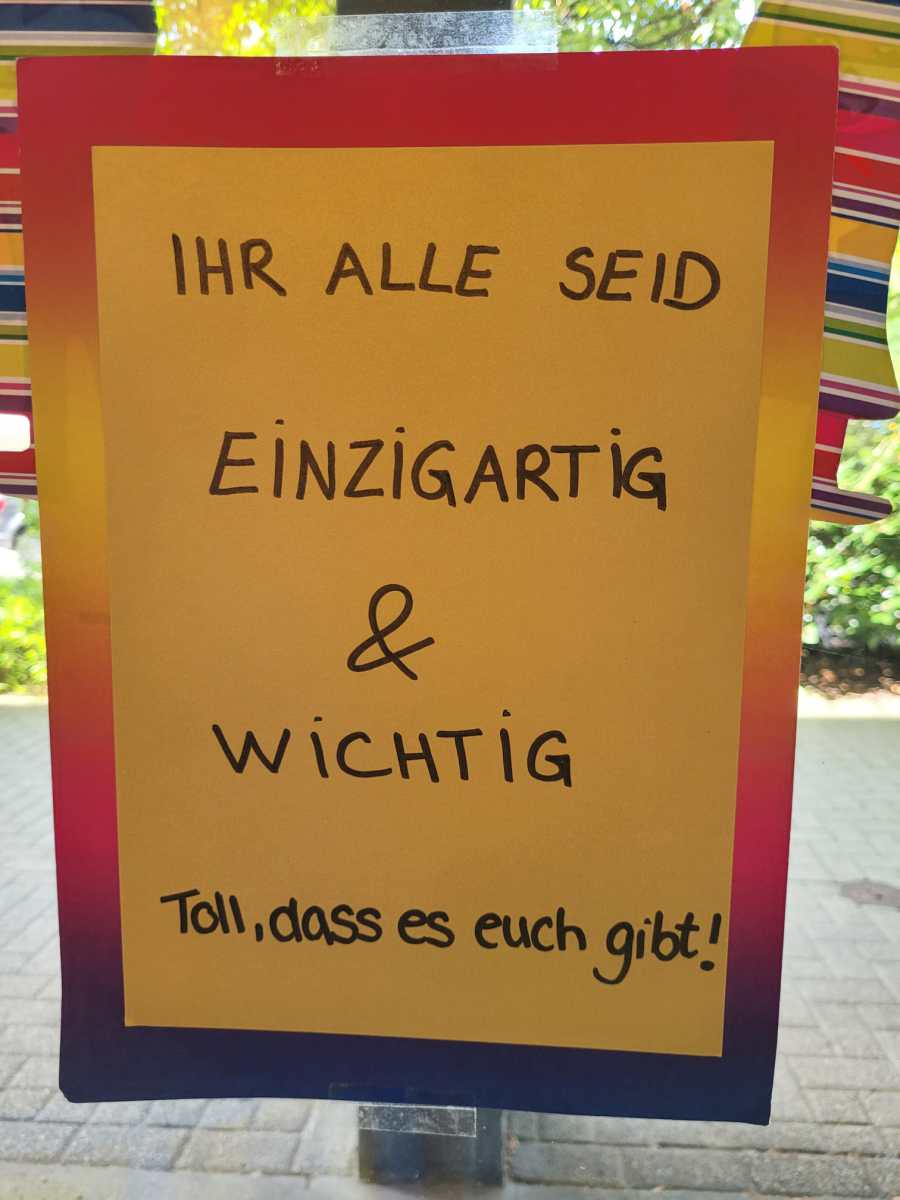 IHR ALLE SEID
EINZIGARTIG
&
WICHTIG
Toll, dass es euch gibt!